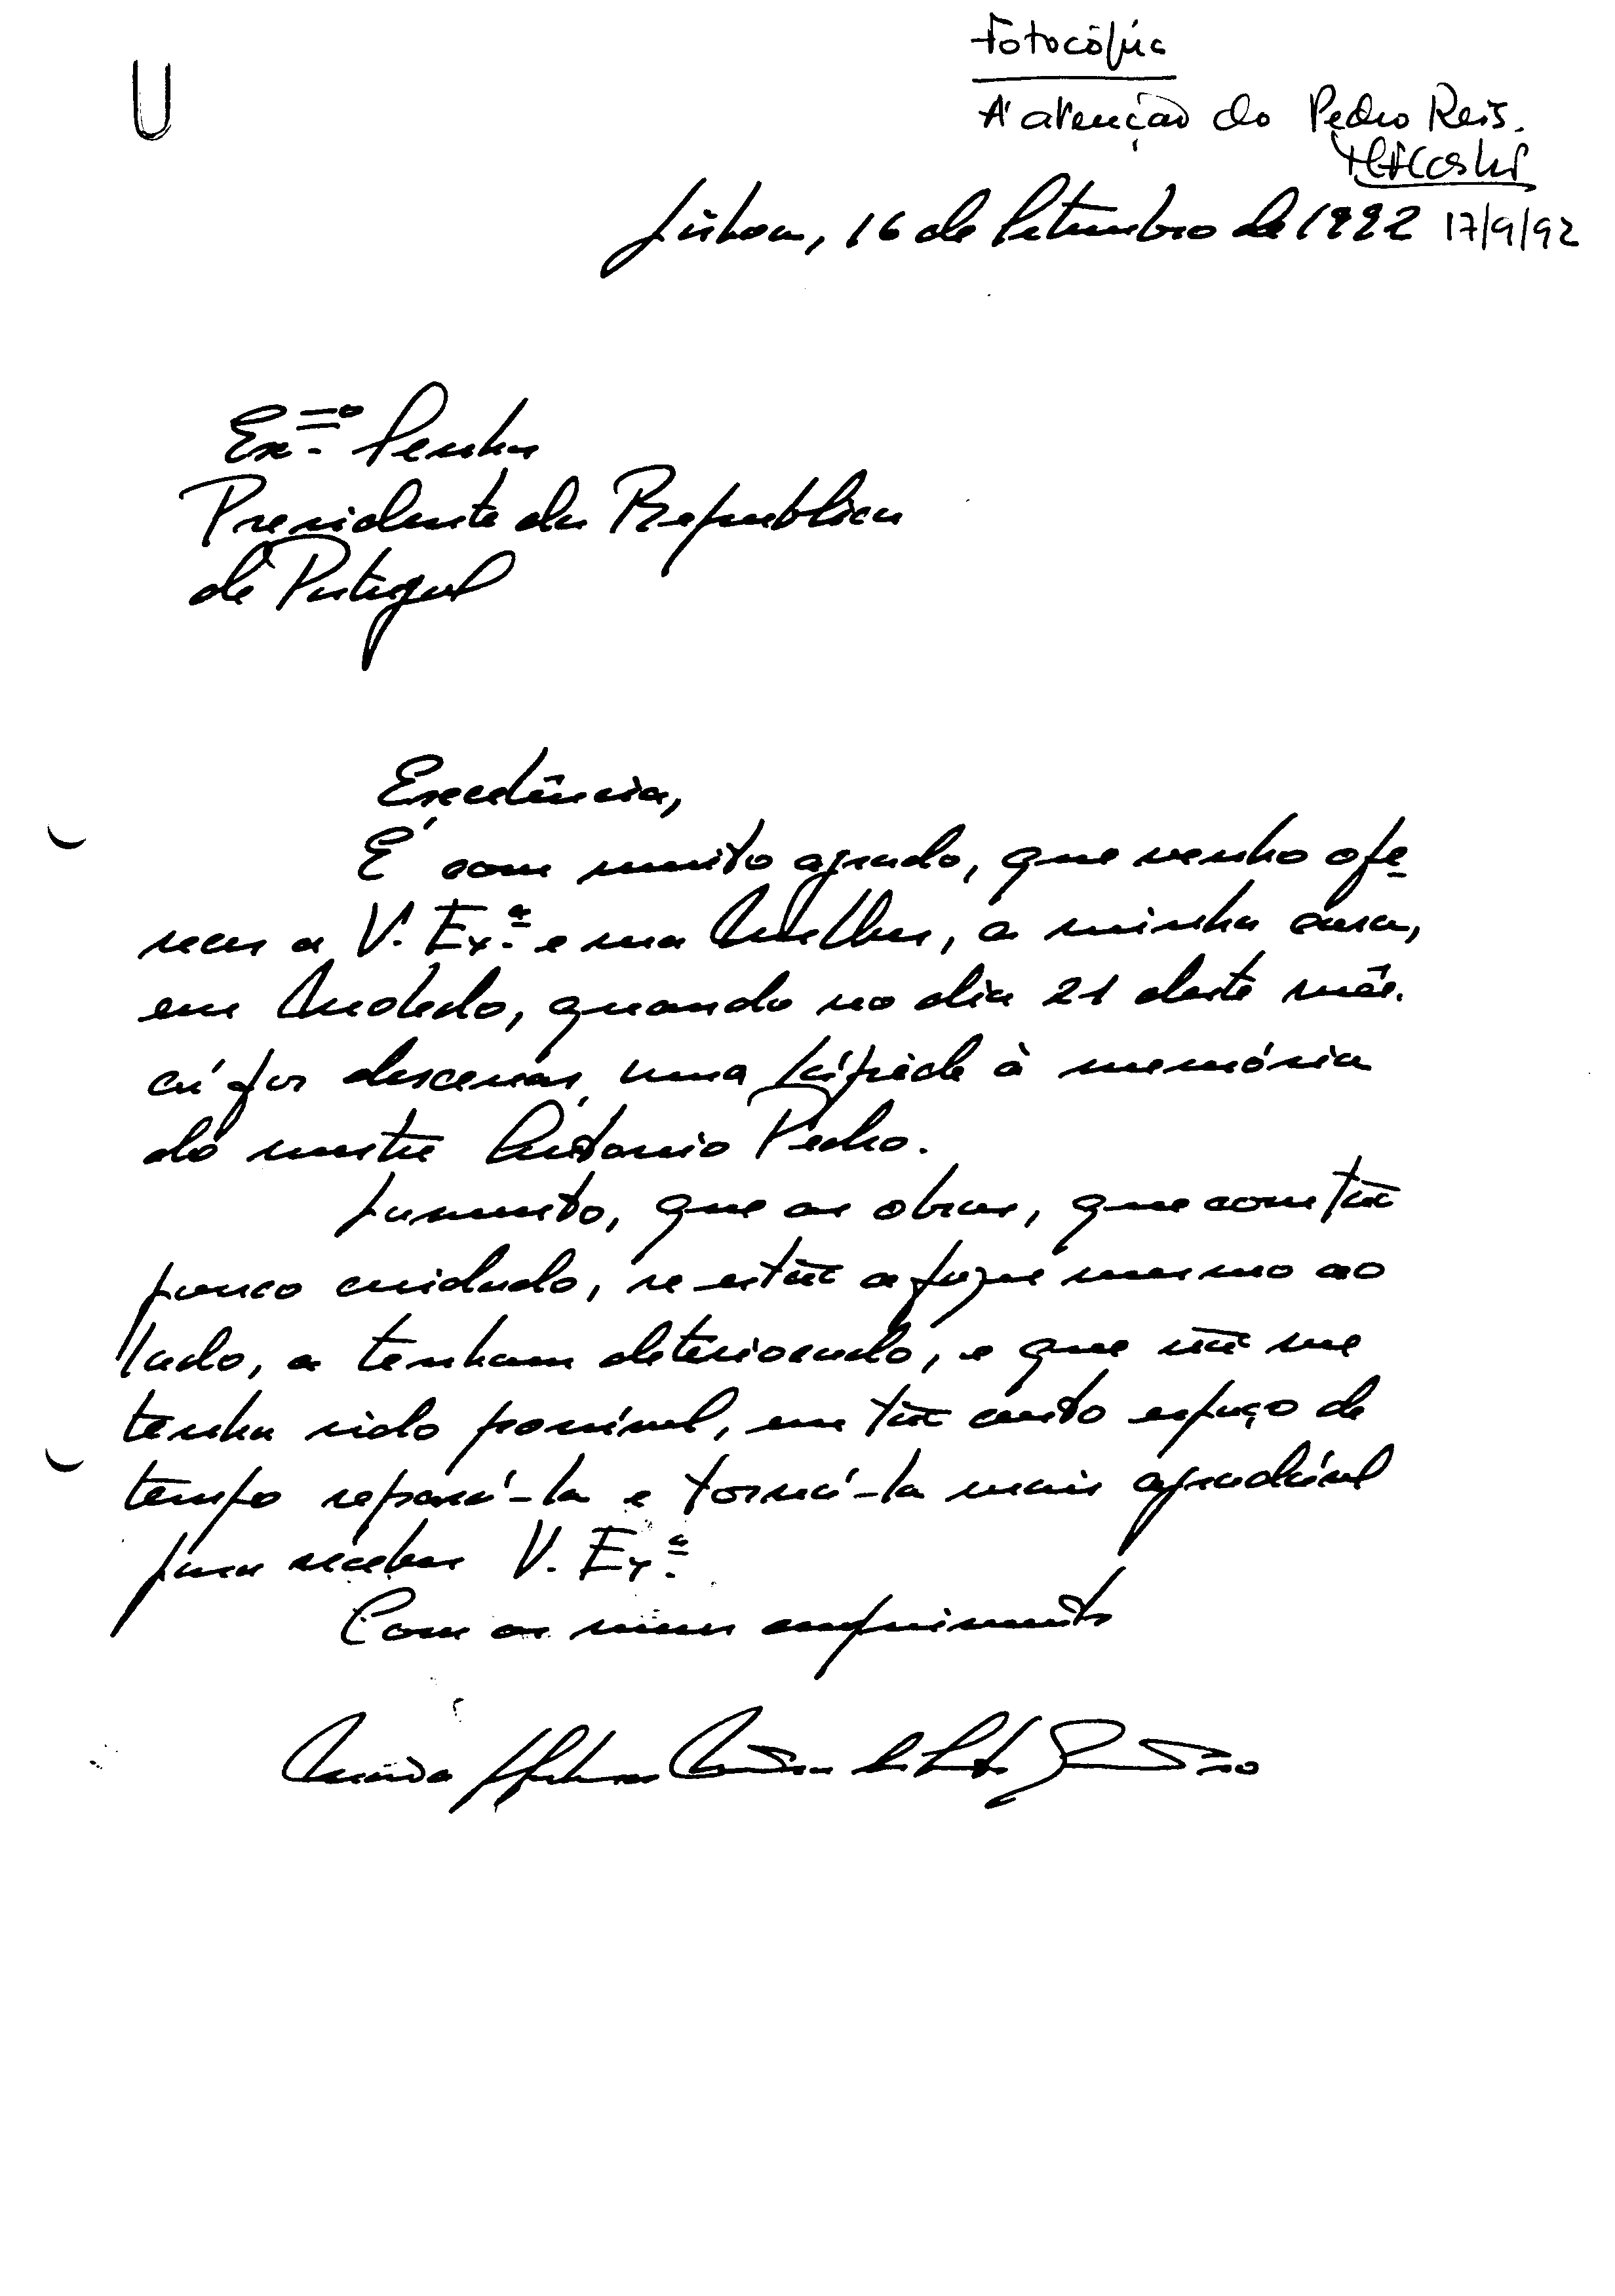 U
Fotocópia
A' atenção do Pedro Reis.
17/9/92
Lisboa, 16 de Setembro de 1992
Ex.mo Senhor
Presidente da Republica
de Portugal
Excelência,
É com muito agrado, que venho ofe
recer a V. Ex.ª e sua Mulher, a minha casa,
em Moledo, quando no dia 21 deste mês.
aí for descerrar, uma lápide à memória
do mestre António Pedro.
Lamento, que as obras, que com tão
pouco cuidado, se estão a fazer mesmo ao
lado, a tenham deteriorado, e que não me
tenha sido possível, em tão curto espaço de
tempo repará-la e torná-la mais agradável
para receber V. Ex.ª
Com os meus cumprimentos
Maria